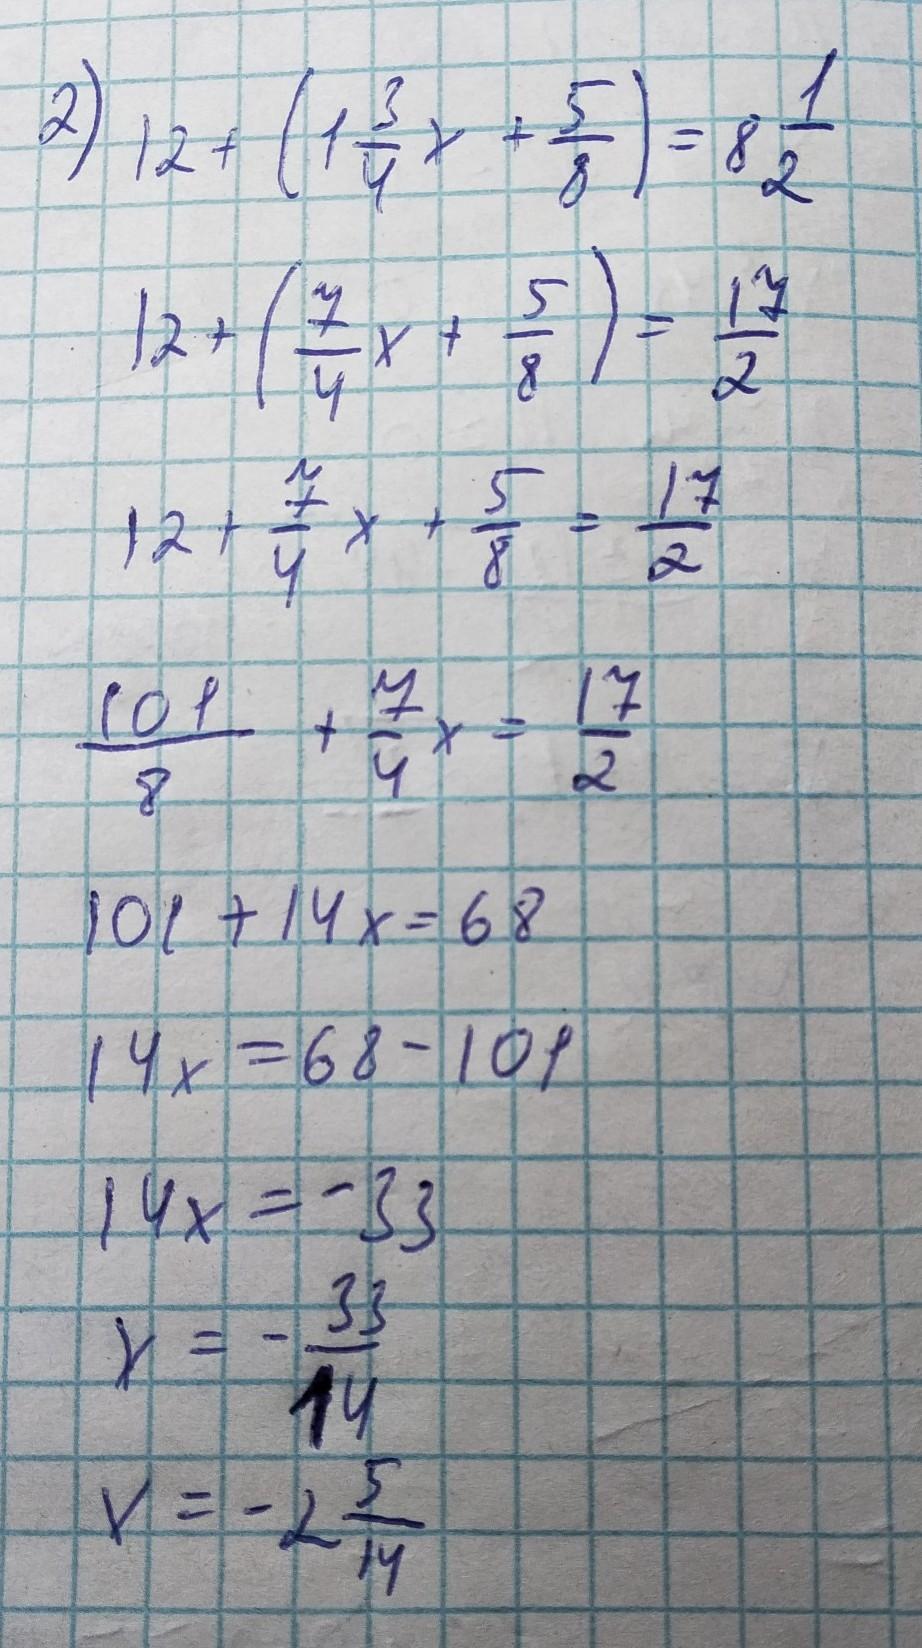 2) 12 + (1 3/4 x + 5/8) = 8 1/2
12 + (7/4 x + 5/8) = 17/2
12 + 7/4 x + 5/8 = 17/2
101/8 + 7/4 x = 17/2
101 + 14x = 68
14x = 68 - 101
14x = -33
x = - 33/14
x = -2 5/14